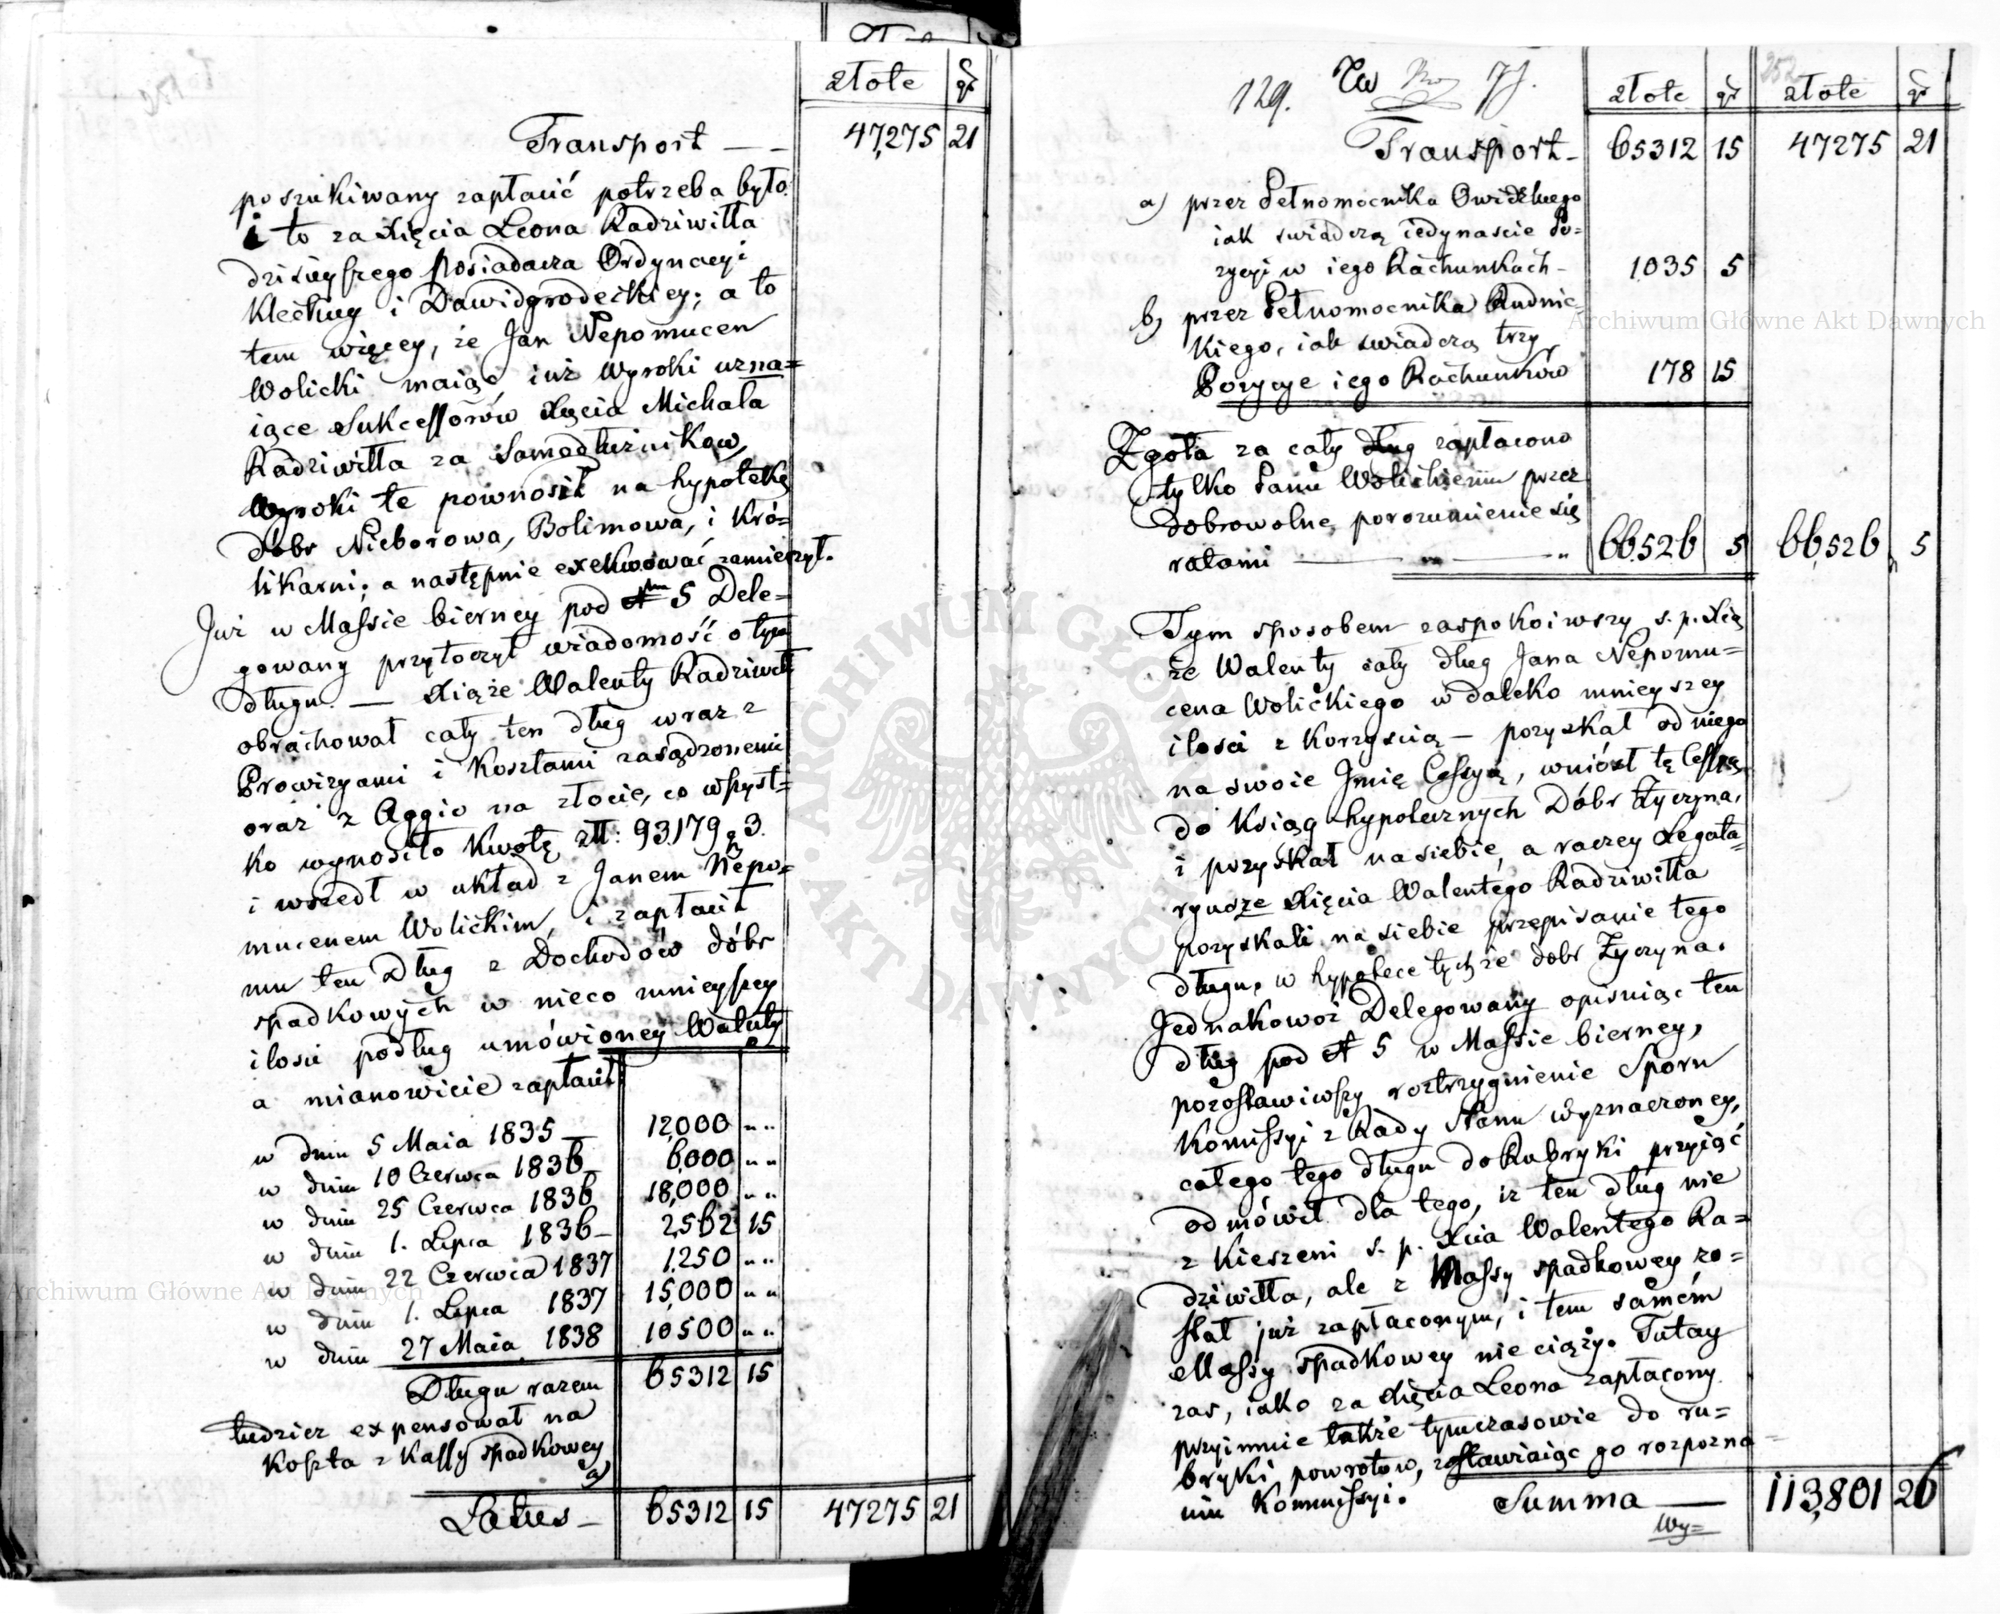 złote gr
Transport — — 47,275 21
poszukiwany zapłacić potrzeba było.
i to za Xięcia Leona Radziwiłła
dzisieyszego posiadacza Ordynacyi
Kleckiey i Dawidgrodeckiey; a to
tem więcey, że Jan Nepomucen
Wolicki maiąc iuż wyroki uzna=
iące Sukcessorów Xięcia Michała
Radziwiłła za Samodłużników,
Wyroki te pownosił na hypotekę
dóbr Nieborowa, Bolimowa, i Kró=
likarni; a następnie exekwować zamierzył.
Już w Massie bierney pod № 5 Dele=
gowany przytoczył wiadomość o tym
długu. — Xiąże Walenty Radziwiłł
obrachował cały ten dług wraz z
Prowizyami i Kosztami zasądzonemi
oraz z Aggio na złocie, co wszyst=
ko wynosiło Kwotę złł: 93,179 g 3.
i wszedł w układ z Janem Nepo=
mucenem Wolickim, i zapłacił
mu ten Dług z Dochodów dóbr
spadkowych w nieco mnieyszey
ilości podług umówioney Waluty
a mianowicie zapłacił:
w dniu 5 Maia 1835 12,000 „ „
w dniu 10 Czerwca 1836 6,000 „ „
w dniu 25 Czerwca 1836 18,000 „ „
w dniu 1. Lipca 1836 2,562 15
w dniu 22 Czerwca 1837 1,250 „ „
w dniu 1. Lipca 1837 15,000 „ „
w dniu 27 Maia 1838 10,500 „ „
Długu razem 65312 15
tudzież expensował na
Koszta z Kassy spadkowey
a)
Latus — 65312 15 47275 21
129.
252
złote gr złote gr
Transport — 65312 15 47275 21
a) przez Pełnomocnika Owidzkiego
iak swiadczą iedynascie Po=
zycyi w iego Rachunkach — 1035 5
b) przez Pełnomocnika Rudnic
kiego, iak swiadczą trzy
Pozycye iego Rachunków 178 15
Zgoła za cały dług zapłacono
tylko Panu Wolickiemu przez
dobrowolne porozumienie się
ratami — „ — „ 66,526 5 66,526 5
Tym sposobem zaspokoiwszy s. p. Xią
że Walenty cały dług Jana Nepomu=
cena Wolickiego w daleko mnieyszey
ilości z korzyścią — pozyskał od niego
na swoie Imię Cessyą, wniósł tę Cessyą
do Ksiąg hypotecznych Dóbr Życzyna,
i pozyskał na siebie, a raczey Legata=
ryusze Xięcia Walentego Radziwiłła
pozyskali na siebie przepisanie tego
długu, w hypotece tychże dóbr Życzyna.
Jednakowoż Delegowany opisuiąc ten
dług pod № 5 w Massie bierney,
pozostawiwszy roztrzygnienie Sporu
Komissyi z Rady Stanu wyznaczoney,
całego tego długu do Rubryki przyiąć
odmówił dla tego, iż ten dług nie
z Kieszeni s. p. Xcia Walentego Ra=
dziwiłła, ale z Massy spadkowey zo=
stał już zapłaconym, i tem samém
Massy spadkowey nie ciąży. Tutay
zas, iako za Xięcia Leona zapłacony
przyimuie także tymczasowie do ru=
bryki powrotów, zostawiaiąc go rozpozna=
niu Kommissyi. Summa — 113,801 26
Wy=
Archiwum Główne Akt Dawnych
Archiwum Główne Akt Dawnych
ARCHIWUM GŁÓWNE AKT DAWNYCH